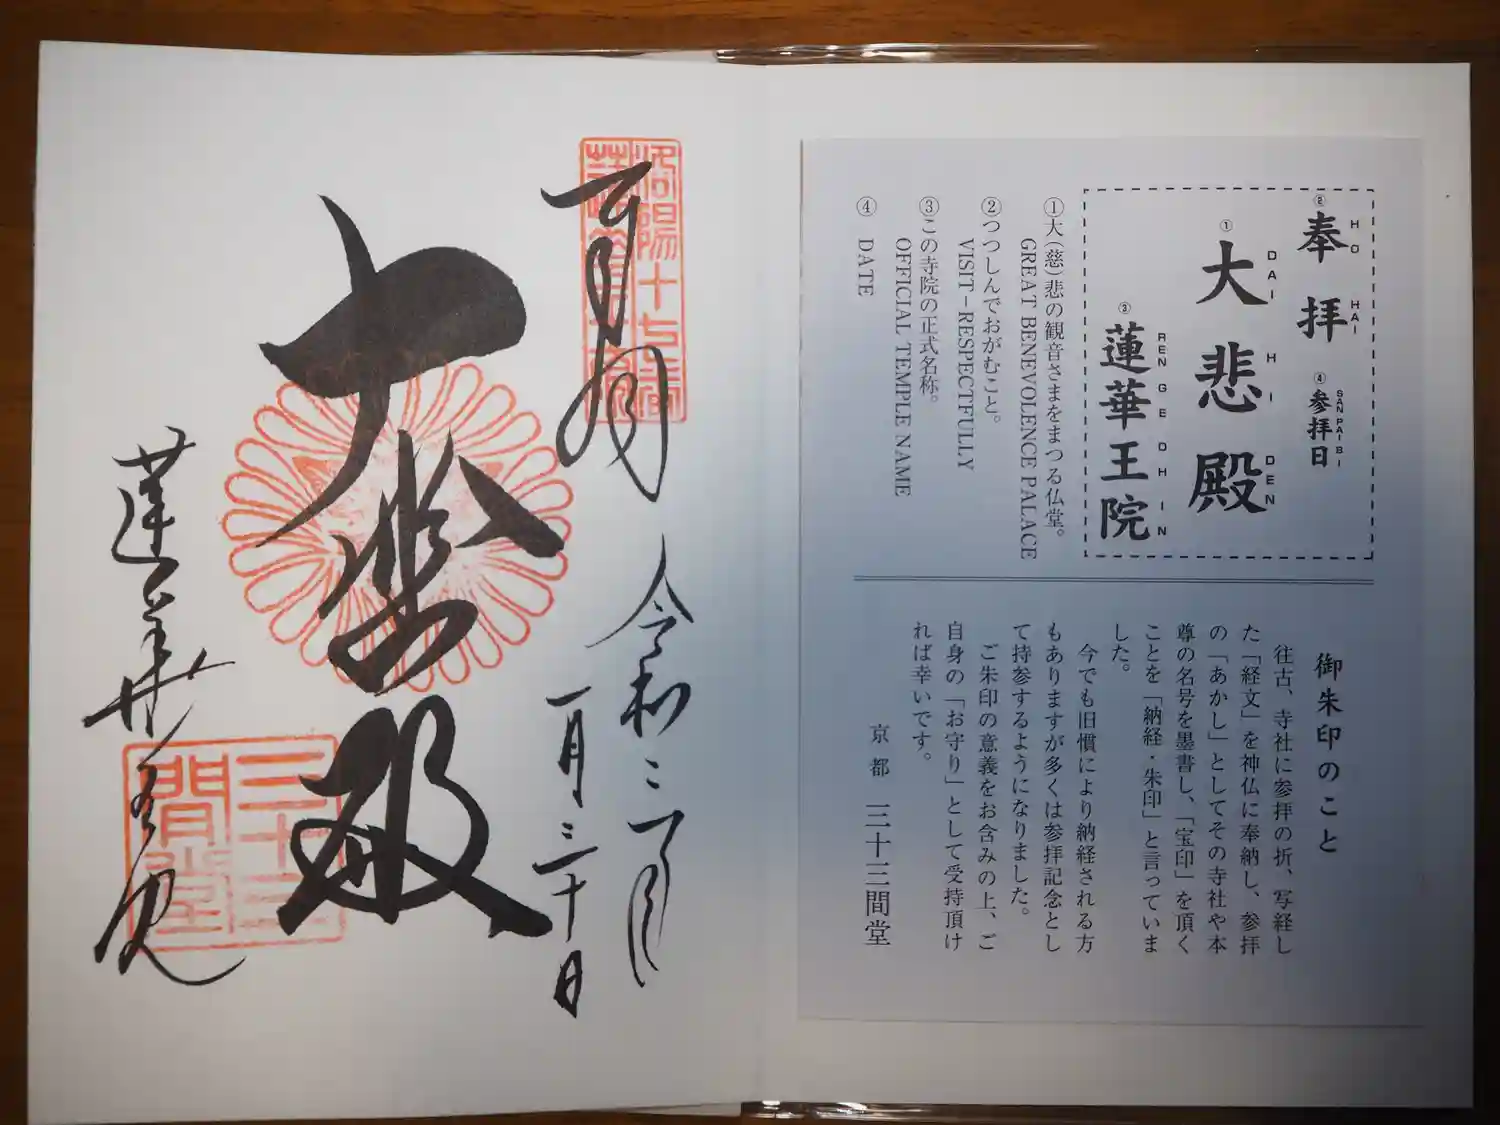 ② 奉拝 ④ 参拝日
HO HAI SAN PAI BI
① 大悲殿
DAI HI DEN
③ 蓮華王院
REN GE OH IN
①大(慈)悲の観音さまをまつる仏堂。
GREAT BENEVOLENCE PALACE
②つつしんでおがむこと。
VISIT-RESPECTFULLY
③この寺院の正式名称。
OFFICIAL TEMPLE NAME
④ DATE
御朱印のこと
往古、寺社に参拝の折、写経し
た「経文」を神仏に奉納し、参拝
の「あかし」としてその寺社や本
尊の名号を墨書し、「宝印」を頂く
ことを「納経・朱印」と言っていま
した。
今でも旧慣により納経される方
もありますが多くは参拝記念とし
て持参するようになりました。
ご朱印の意義をお含みの上、ご
自身の「お守り」として受持頂け
れば幸いです。
京都 三十三間堂
洛陽十七番
奉拝 令和三年
一月三十日
大悲殿
蓮華王院
三十三
間堂